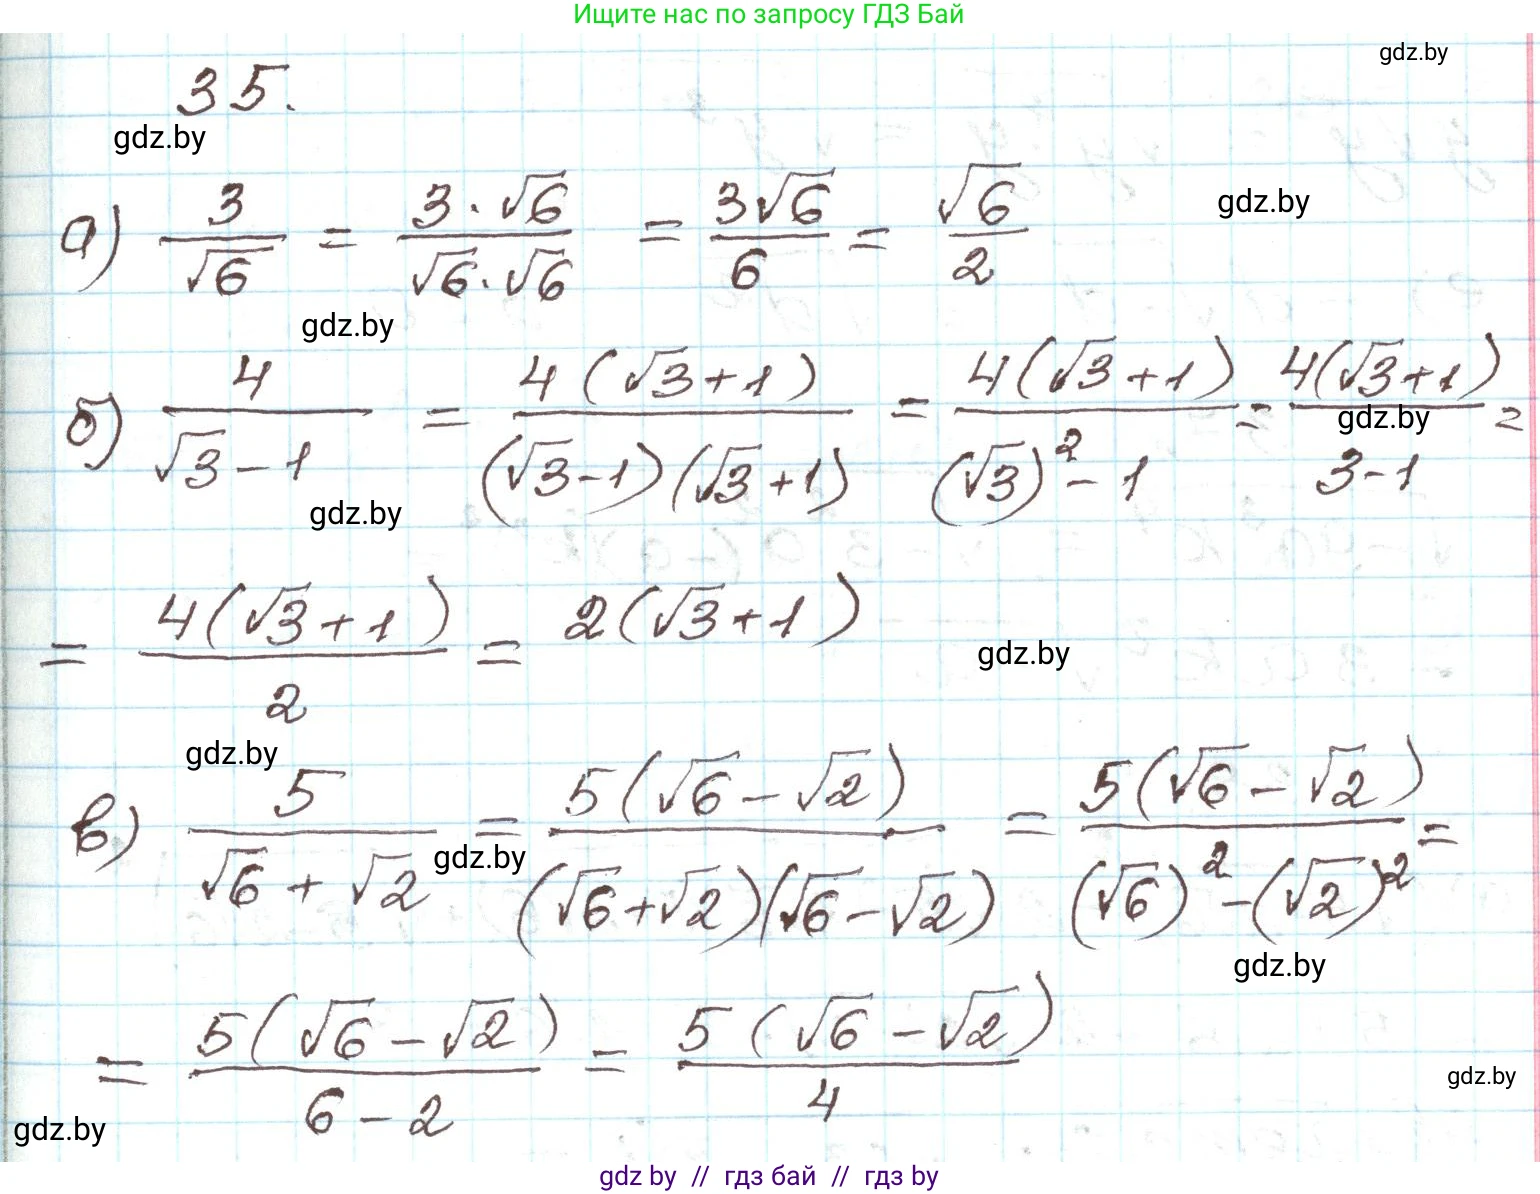 Ищите нас по запросу ГДЗ Бай
gdz.by
35.
gdz.by
а) 3/√6 = 3·√6/(√6·√6) = 3√6/6 = √6/2
gdz.by
gdz.by
б) 4/(√3-1) = 4(√3+1)/((√3-1)(√3+1)) = 4(√3+1)/((√3)²-1) = 4(√3+1)/(3-1) =
gdz.by
gdz.by
= 4(√3+1)/2 = 2(√3+1)
gdz.by
gdz.by
в) 5/(√6+√2) = 5(√6-√2)/((√6+√2)(√6-√2)) = 5(√6-√2)/((√6)²-(√2)²) =
gdz.by
gdz.by
= 5(√6-√2)/(6-2) = 5(√6-√2)/4
gdz.by
gdz.by
gdz.by // гдз бай // гдз by